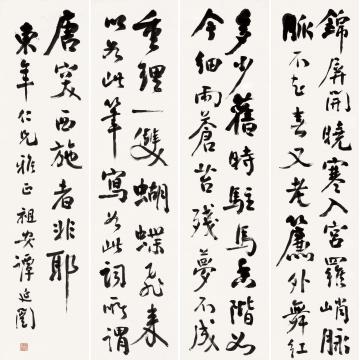 錦屏開曉寒入宮羅峭脈
脈不知春又老簾外舞紅
多少舊時駐馬香階如
今細雨蒼苔殘夢不成
重理一雙蝴蝶飛來
以若此筆寫若此詞所謂
唐突西施者非耶
東年仁兄雅正 祖安譚延闓